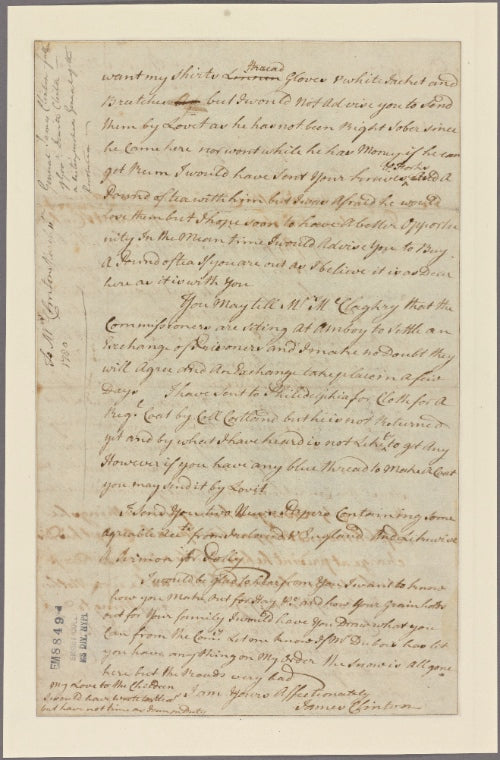 want my Shirts Thread Gloves & white Jacket and
Breetches but I would Not Advise you to Send
them by Lovit as he has not been Right Sober since
he Came here nor wont while he has Money if he can
get Rum I would have Sent Your & Forks and A
Pound of tea with him but I was Afraid he would
lose them but I hope soon to have A better Opportu
nity In the Mean time I would Advise You to Buy
A Pound of tea If you are out as I believe it is as Dear
here as it is with You
You May till Mrs. McClaghry that the
Commissoners are siting at Amboy to Settle an
Exchange of Prisoners and I make no Doubt they
will Agree and An Exchange take place in A few
Days I have Sent to Philadelphia for Cloth for A
Regl. Coat by Coll Cortland but he is not Returned
yet and by what I have heard is not Likly to get Any
However if you have any blue thread to Make A Coat
you may send it by Lovit
I send You two News Papers Containing Some
agreable from Ireland & England And Likewise
A Sermon for Polly
I would be glad to hear from You I want to know
how you Make out for Hay &c. and how Your Grain holds
out for Your family I would have You Draw what you
Can from the Let me know If Mr. Dubois has let
you have any thing on My order the Snow is All gone
here but the Roads very bad
My Love to the Children
I am Yours Affectionately
James Clinton
I would have wrote
but have not time as I am on Duty
To Mrs. Clinton
1780.
General James Clinton
EM8849
MS DIV. NYPL